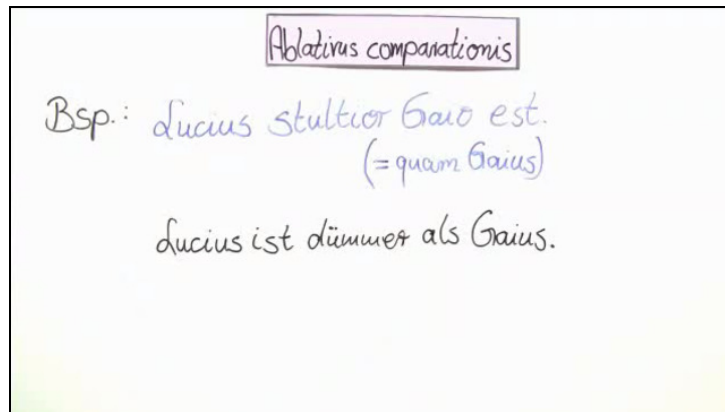 Ablativus comparationis
Bsp.: Lucius stultior Gaio est.
(= quam Gaius)
Lucius ist dümmer als Gaius.